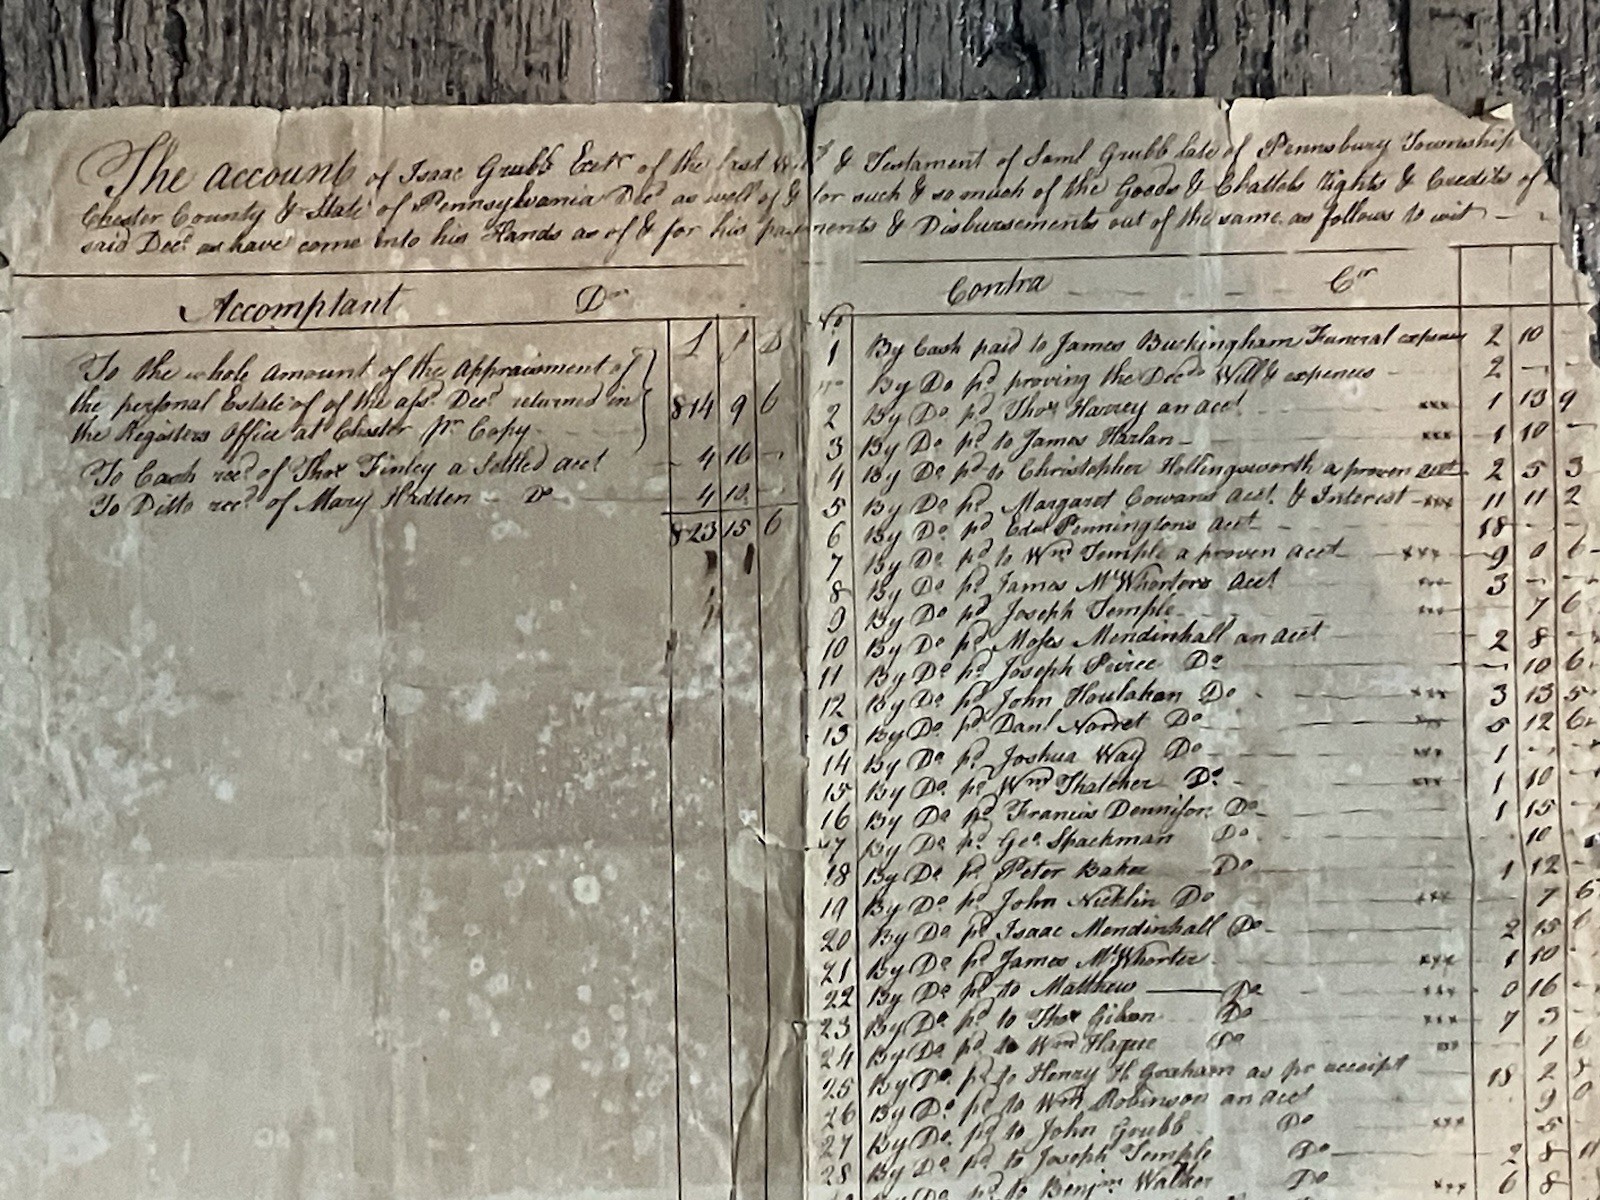 The account of Isaac Grubb Exetr of the last Will & Testament of Saml Grubb late of Pennsbury Township
Chester County & State of Pennsylvania Decd as well of & for such & so much of the Goods & Chattels Rights & Credits of
said Decd as have come into his Hands as of & for his payments & Disbursements out of the same as follows to wit
Accomptant Dr
£ S D
To the whole Amount of the Appraisment of
the personal Estate of of the afsd Decd returned in 814 9 6
the Registers Office at Chester pr Copy
To Cash recd of Thos Finley a Settled acct 4 16 -
To Ditto recd of Mary Hadden Do 4 10 -
823 15 6
Contra Cr
No
1 By Cash paid to James Buckingham Funeral expenses 2 10 -
By Do pd proving the Decds Will & expences 2 - -
2 By Do pd Thos Harvey an acct xxx 1 13 9
3 By Do pd to James Harlan xxx 1 10 -
4 By Do pd to Christopher Hollingsworth a proven acct 2 5 3
5 By Do pd Margaret Cowans acct & Interest xxx 11 11 2
6 By Do pd Edwd Penningtons acct 18 - -
7 By Do pd to Wm Temple a proven acct xxx 9 0 6
8 By Do pd James McWhorters acct xxx 3 - -
9 By Do pd Joseph Temple xxx 7 6
10 By Do pd Moses Mendinhall an acct 2 8 -
11 By Do pd Joseph Peirce Do - 10 6
12 By Do pd John Houlahan Do xxx 3 13 5
13 By Do pd Danl Norret Do xxx 5 12 6
14 By Do pd Joshua Way Do xxx 1 - -
15 By Do pd Wm Thatcher Do xxx 1 10 -
16 By Do pd Francis Dennison Do 1 15 -
17 By Do pd Geo Spackman Do 10 -
18 By Do pd Peter Baker Do 1 12 -
19 By Do pd John Nicklin Do xxx 7 6
20 By Do pd Isaac Mendinhall Do 2 15
21 By Do pd James McWhorter xxx 1 10 -
22 By Do pd to Matthew Do xxx 0 16 -
23 By Do pd to Thos Gibson Do xxx 7 3 -
24 By Do pd to Wm Hague Do xxx 7 6
25 By Do pd to Henry H Graham as pr receipt 18 2
26 By Do pd to Wm Robinson an acct 9 0
27 By Do pd to John Grubb Do xxx 5 -
28 By Do pd to Joseph Temple Do 2 8 11
By Do pd to Benjmn Walker Do xxx 6 8